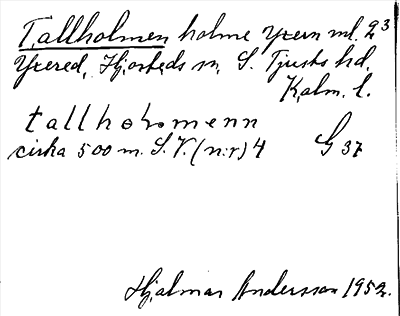 Tallholmen holme Yxern ml. 23
Yxered, Hjorteds sn, S. Tjusts hd,
Kalm. l.
tallholmenn
cirka 500 m. S.V. (nr) 4 G 37
Hjalmar Andersson 1952.